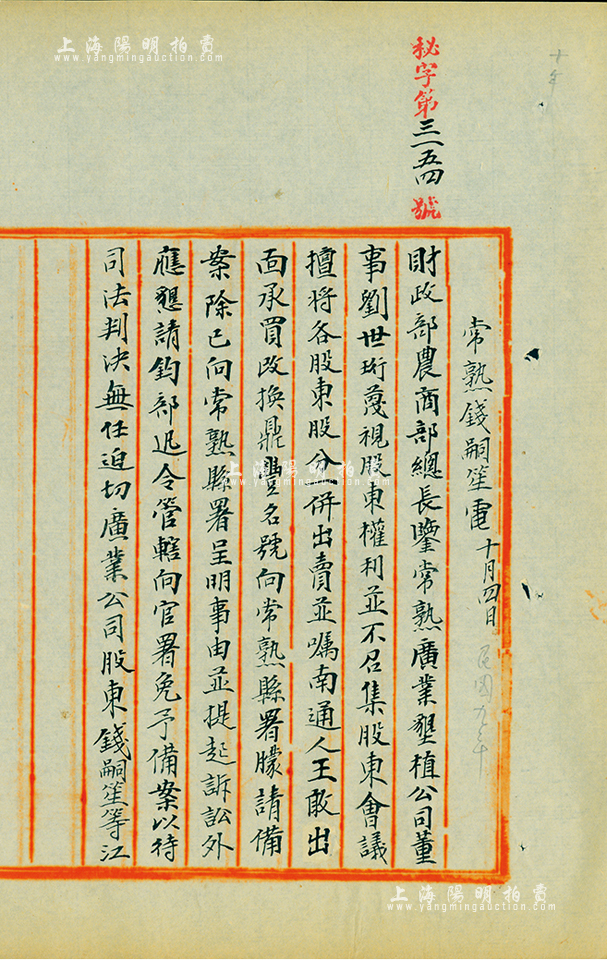 秘字第三一五四號
常熟錢嗣笙電 十月四日
民國九年
財政部農商部總長鑒常熟廣業墾植公司董
事劉世珩蔑視股東權利並不召集股東會議
擅將各股東股分併出賣並囑南通人王敢出
面承買改換鼎豐名號向常熟縣署朦請備
案除已向常熟縣署呈明事由並提起訴訟外
應懇請鈞部迅令管轄向官署免予備案以待
司法判決無任迫切廣業公司股東錢嗣笙等江
十年
上海陽明拍賣
www.yangmingauction.com
上海陽明拍賣
www.yangmingauction.com
上海陽明拍賣
www.yangmingauction.com